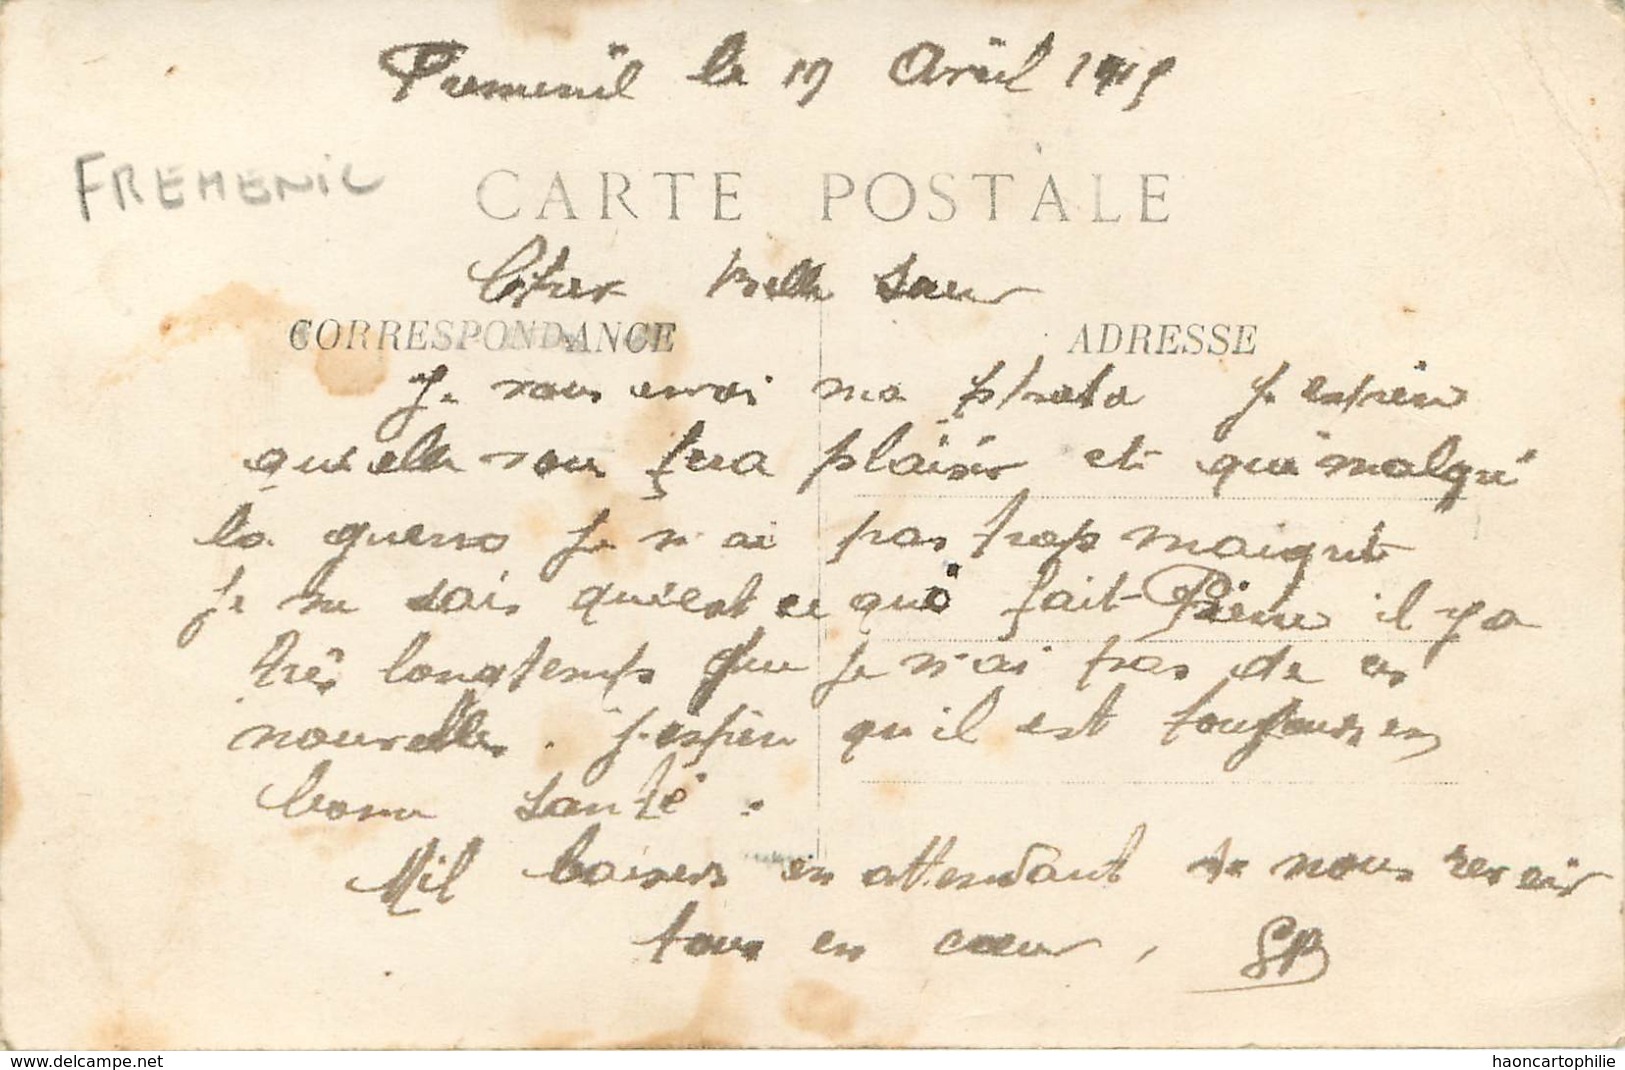 Fremenil le 19 Avril 1915
FREMENIL
CARTE POSTALE
Cher Belle Sœur
CORRESPONDANCE
ADRESSE
Je vous envoi ma photo J'espère
qu'elle vou fera plaisir et que malgré
la guerre Je n'ai pas trop maigrit
Je ne sais qu'est ce que fait Pierre il y a
très longtemps que Je n'ai pas de ces
nouvelles. J'espère qu'il est toujours en
bonne santé.
Mil baisers en attendant de nous revoir
tous en cœur. GB
www.delcampe.net
haoncartophilie